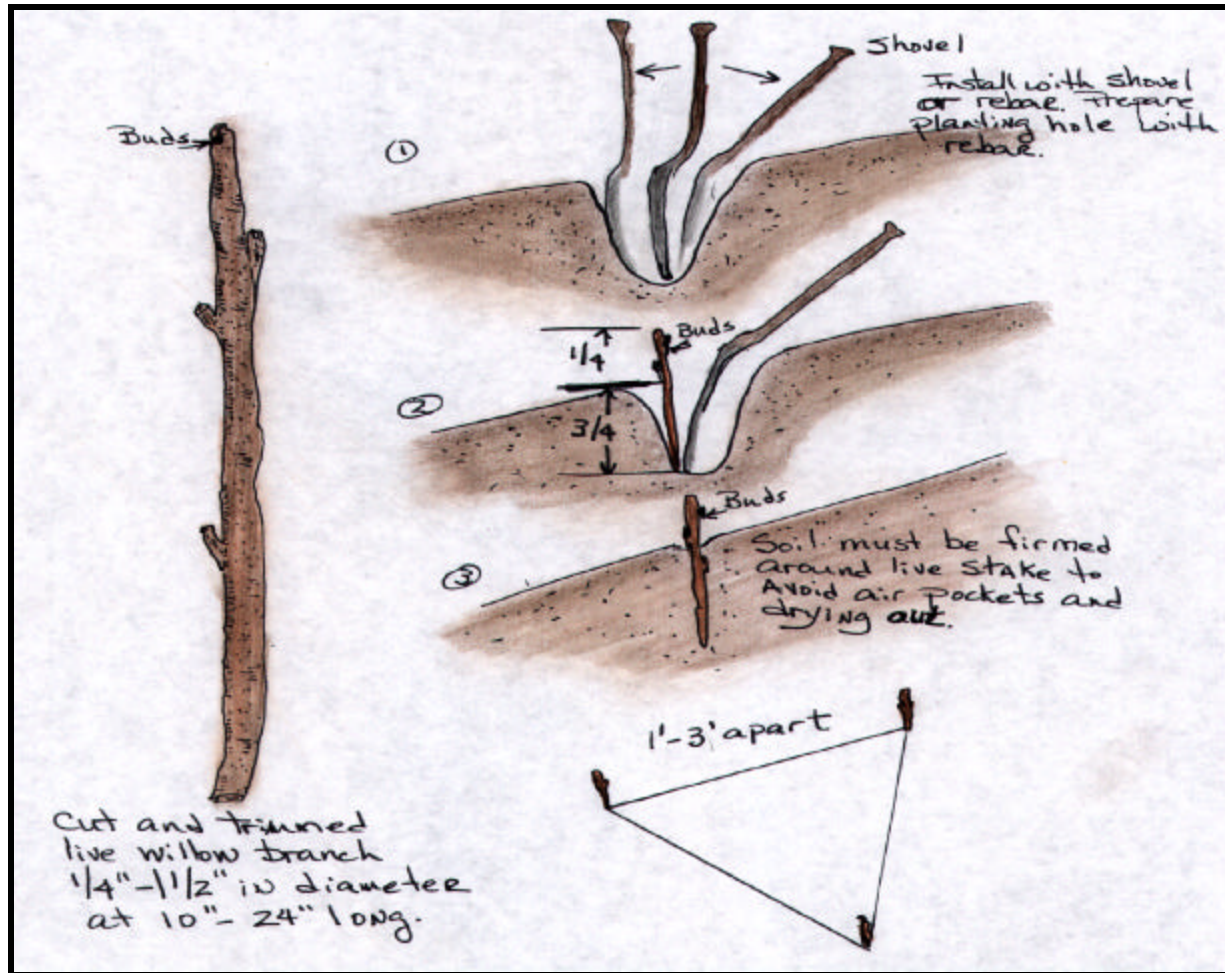 Buds
①
Shovel
Install with shovel
or rebar. Prepare
planting hole with
rebar.
②
1/4
3/4
Buds
③
Buds
Soil must be firmed
around live STAKE to
AVOID air pockets and
drying out.
1'-3' apart
Cut and trimmed
live willow branch
1/4"-1 1/2" in diameter
at 10"-24" long.